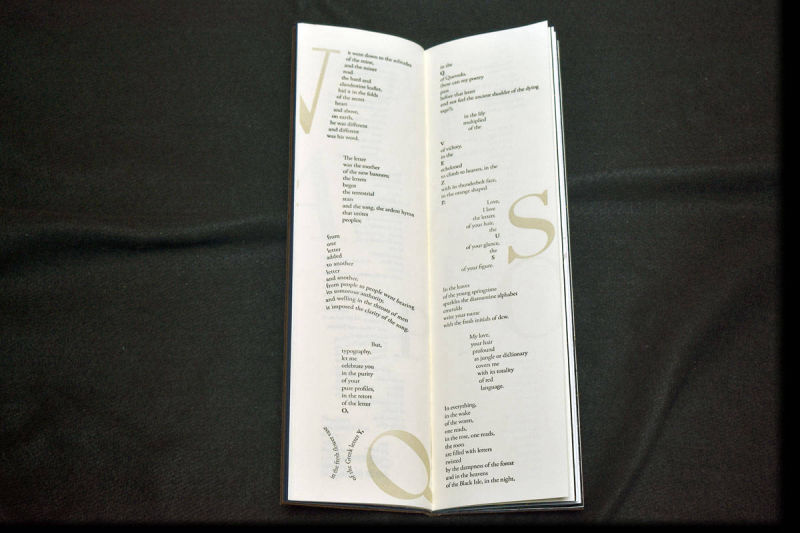 it went down to the solitudes
of the mine,
and the miner
read
the hard and
clandestine leaflet,
hid it in the folds
of the secret
heart
and above,
on earth,
he was different
and different
was his word.
The letter
was the mother
of the new banners;
the letters
begot
the terrestrial
stars
and the song, the ardent hymn
that unites
peoples;
from
one
letter
added
to another
letter
and another,
from people to people went bearing
its sonorous authority,
and welling in the throats of men
it imposed the clarity of the song.
But,
typography,
let me
celebrate you
in the purity
of your
pure profiles,
in the retort
of the letter
O,
in the fresh flower vase
of the Greek letter Y,
V
Q
in the
Q
of Quevedo,
(how can my poetry
pass
before that letter
and not feel the ancient shudder of the dying
sage?),
in the lily
multiplied
of the
V
of victory,
in the
E
echeloned
to climb to heaven, in the
Z
with its thunderbolt face,
in the orange shaped
P.
Love,
I love
the letters
of your hair,
the
U
of your glance,
the
S
of your figure.
In the leaves
of the young springtime
sparkles the diamantine alphabet
emeralds
write your name
with the fresh initials of dew.
My love,
your hair
profound
as jungle or dictionary
covers me
with its totality
of red
language.
In everything,
in the wake
of the worm,
one reads,
in the rose, one reads,
the roots
are filled with letters
twisted
by the dampness of the forest
and in the heavens
of the Black Isle, in the night,
S